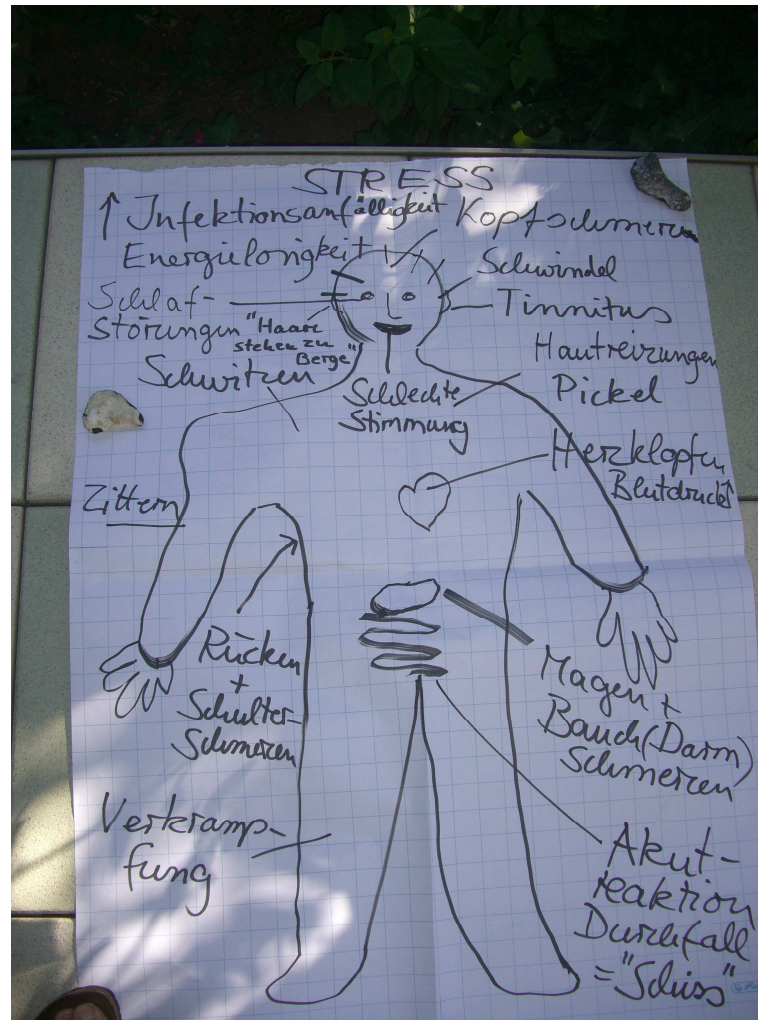 STRESS
↑ Infektionsanfälligkeit
Kopfschmerzen
Energielosigkeit
Schwindel
Schlaf-
störungen
Tinnitus
"Haare
stehen zu
Berge"
Schwitzen
Schlechte
Stimmung
Hautreizungen
Pickel
Herzklopfen
Blutdruck↑
Zittern
Rücken
+
Schulter-
Schmerzen
Magen +
Bauch(Darm)
Schmerzen
Verkramp-
fung
Akut-
reaktion
Durchfall
="Schiss"